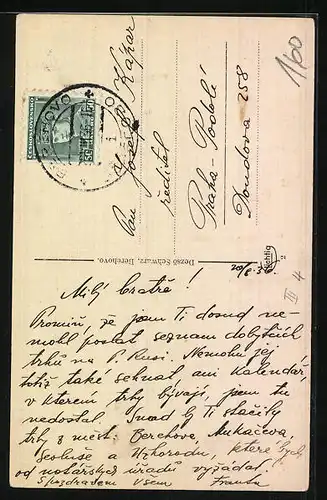 1/60
ČESKOSLOVENSKO
BEREHOVO
Pan
Josef Kápar
ředitel
Praha - Podolí
Doudova 258
Dezső Schwarz, Berehovo.
Milý bratře!
Promiň, že jsem Ti dosud ne-
mohl poslat seznam dobytčích
trhů na P. Rusi. Nemohu jej
totiž také sehnat ani kalendář,
v kterém trhy bývají, jsem tu
nedostal. Snad by Ti stačily
trhy z měst: Berehova, Mukačeva,
Sevluše a Užhorodu, které bych
od notářských úřadů vyžádal.
S pozdravem všem Franta